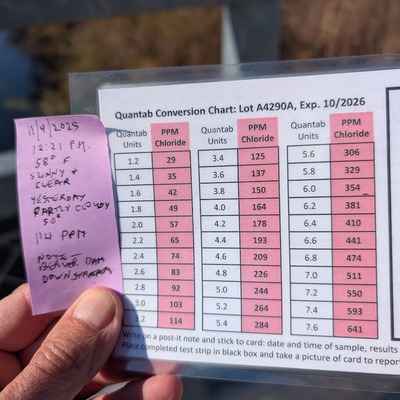 11/4/2025
12:21 P.M.
58° F
SUNNY +
CLEAR
YESTERDAY
PARTLY CLOUDY
50°
114 PPM
NOTE =
BEAVER DAM
DOWNSTREAM
Quantab Conversion Chart: Lot A4290A, Exp. 10/2026
Quantab Units PPM Chloride Quantab Units PPM Chloride Quantab Units PPM Chloride
1.2 29 3.4 125 5.6 306
1.4 35 3.6 137 5.8 329
1.6 42 3.8 150 6.0 354
1.8 49 4.0 164 6.2 381
2.0 57 4.2 178 6.4 410
2.2 65 4.4 193 6.6 441
2.4 74 4.6 209 6.8 474
2.6 83 4.8 226 7.0 511
2.8 92 5.0 244 7.2 550
3.0 103 5.2 264 7.4 593
3.2 114 5.4 284 7.6 641
Write on a post-it note and stick to card: date and time of sample, results
Place completed test strip in black box and take a picture of card to report